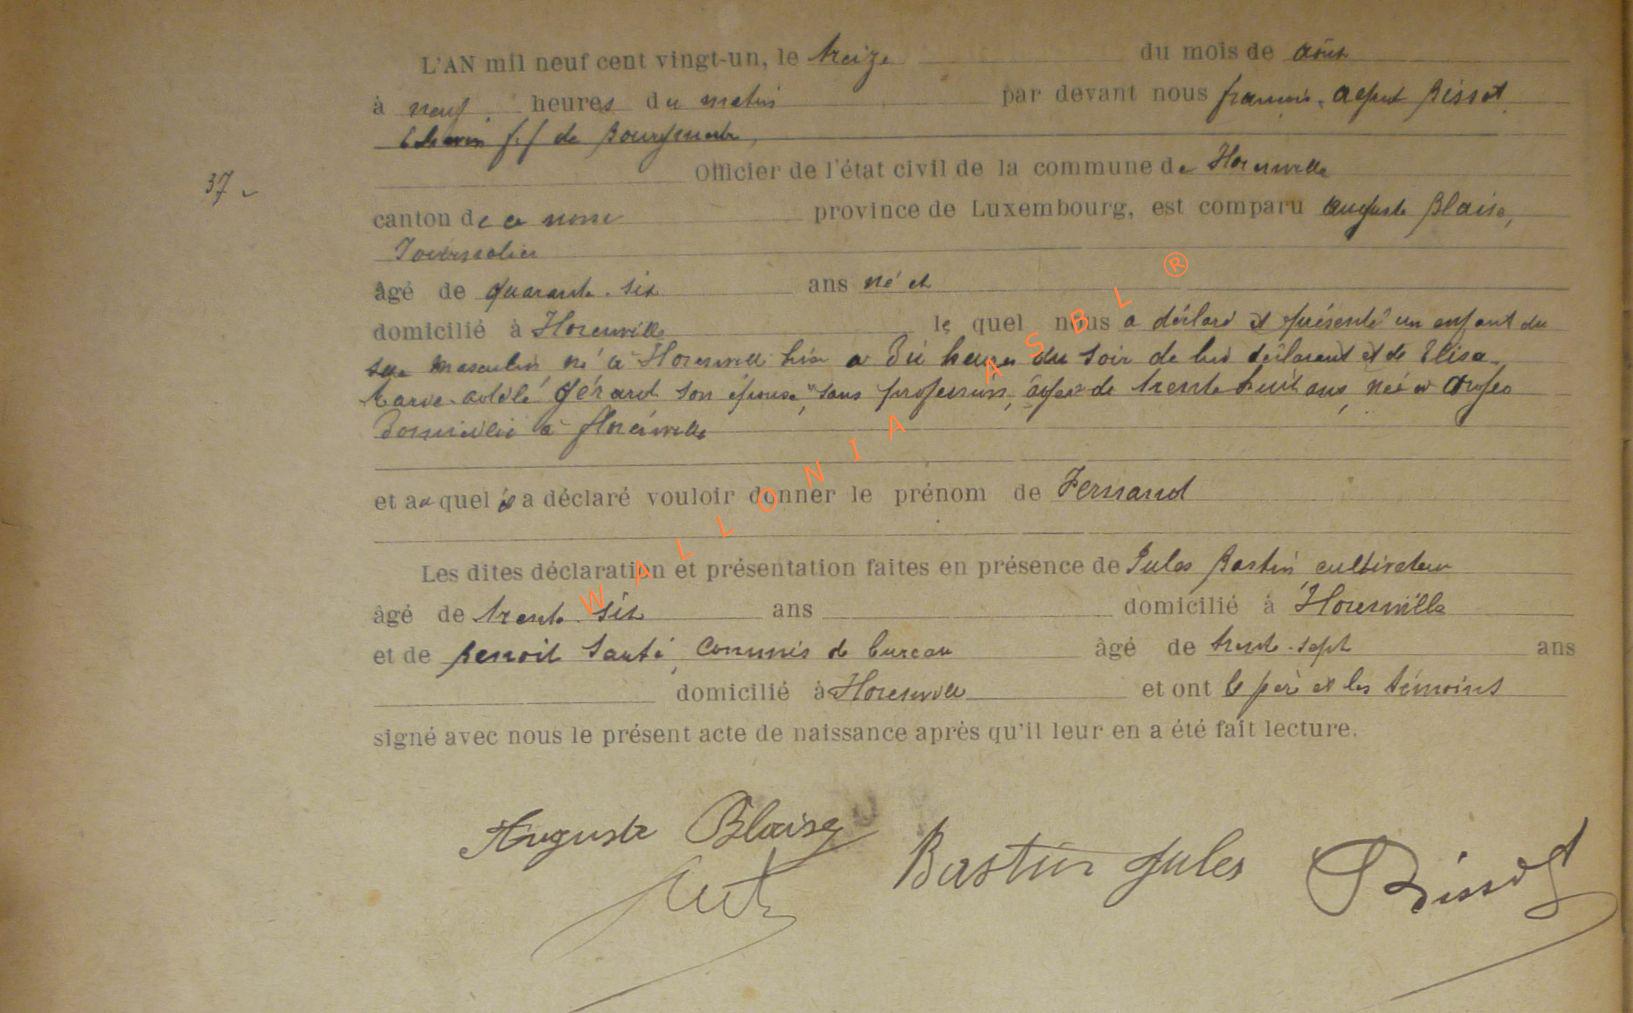 L'AN mil neuf cent vingt-un, le treize du mois de août
à neuf heures du matin par devant nous françois Bissot
Echevin f.f de Bourgmestre,
Officier de l'état civil de la commune de Florenville
37
canton de ce nom province de Luxembourg, est comparu Auguste Blaise,
Journalier
âgé de quarante-six ans né et
domicilié à Florenville le quel nous a déclaré et présenté un enfant du
sexe masculin né à Florenville hier a dix heures du soir de lui déclarant et de Elisa
Marie Gérard son épouse, sans profession, âgée de trente huit ans, née a
Domiciliée à florenville
et au quel il a déclaré vouloir donner le prénom de Fernand
Les dites déclaration et présentation faites en présence de Jules Bastin cultivateur
âgé de trente-six ans domicilié à Florenville
et de Benoit commis de bureau âgé de trente-sept ans
domicilié à Florenville et ont le père et les témoins
signé avec nous le présent acte de naissance après qu'il leur en a été fait lecture.
Auguste Blaise Bastin Jules Bissot
WALLONIA ASBL ®